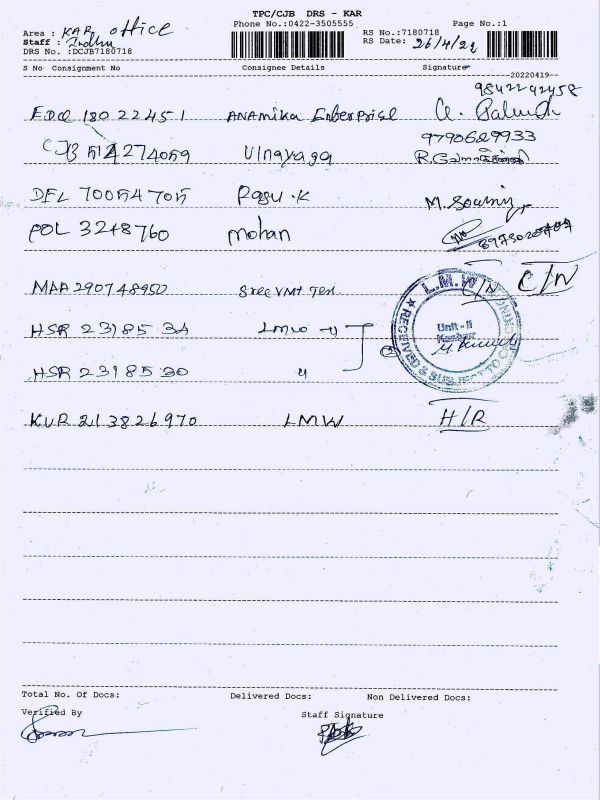 TPC/CJB DRS - KAR
Area : KAR office Phone No.:0422-3505555 Page No.:1
Staff : Indhu RS No.:7180718
DRS No. :DCJB7180718 RS Date: 26/4/22
S No Consignment No Consignee Details Signature
--20220419--
9842242458
EDQ 180 22451 ANAMika Enterprise
9790629933
CJB 514274059 Vinayaga
DEL 70054705 Ragu.K
POL 3248760 mohan
MAA 290748950 Sree VMT Tex. C/N C/N
HSR 23185 34 LMW - 4
HSR 2318530 "
L.M.W
Unit - II
RECEIVED & SUBJECT TO
KUR 213826970 LMW H/R
Total No. Of Docs: Delivered Docs: Non Delivered Docs:
Verified By Staff Signature